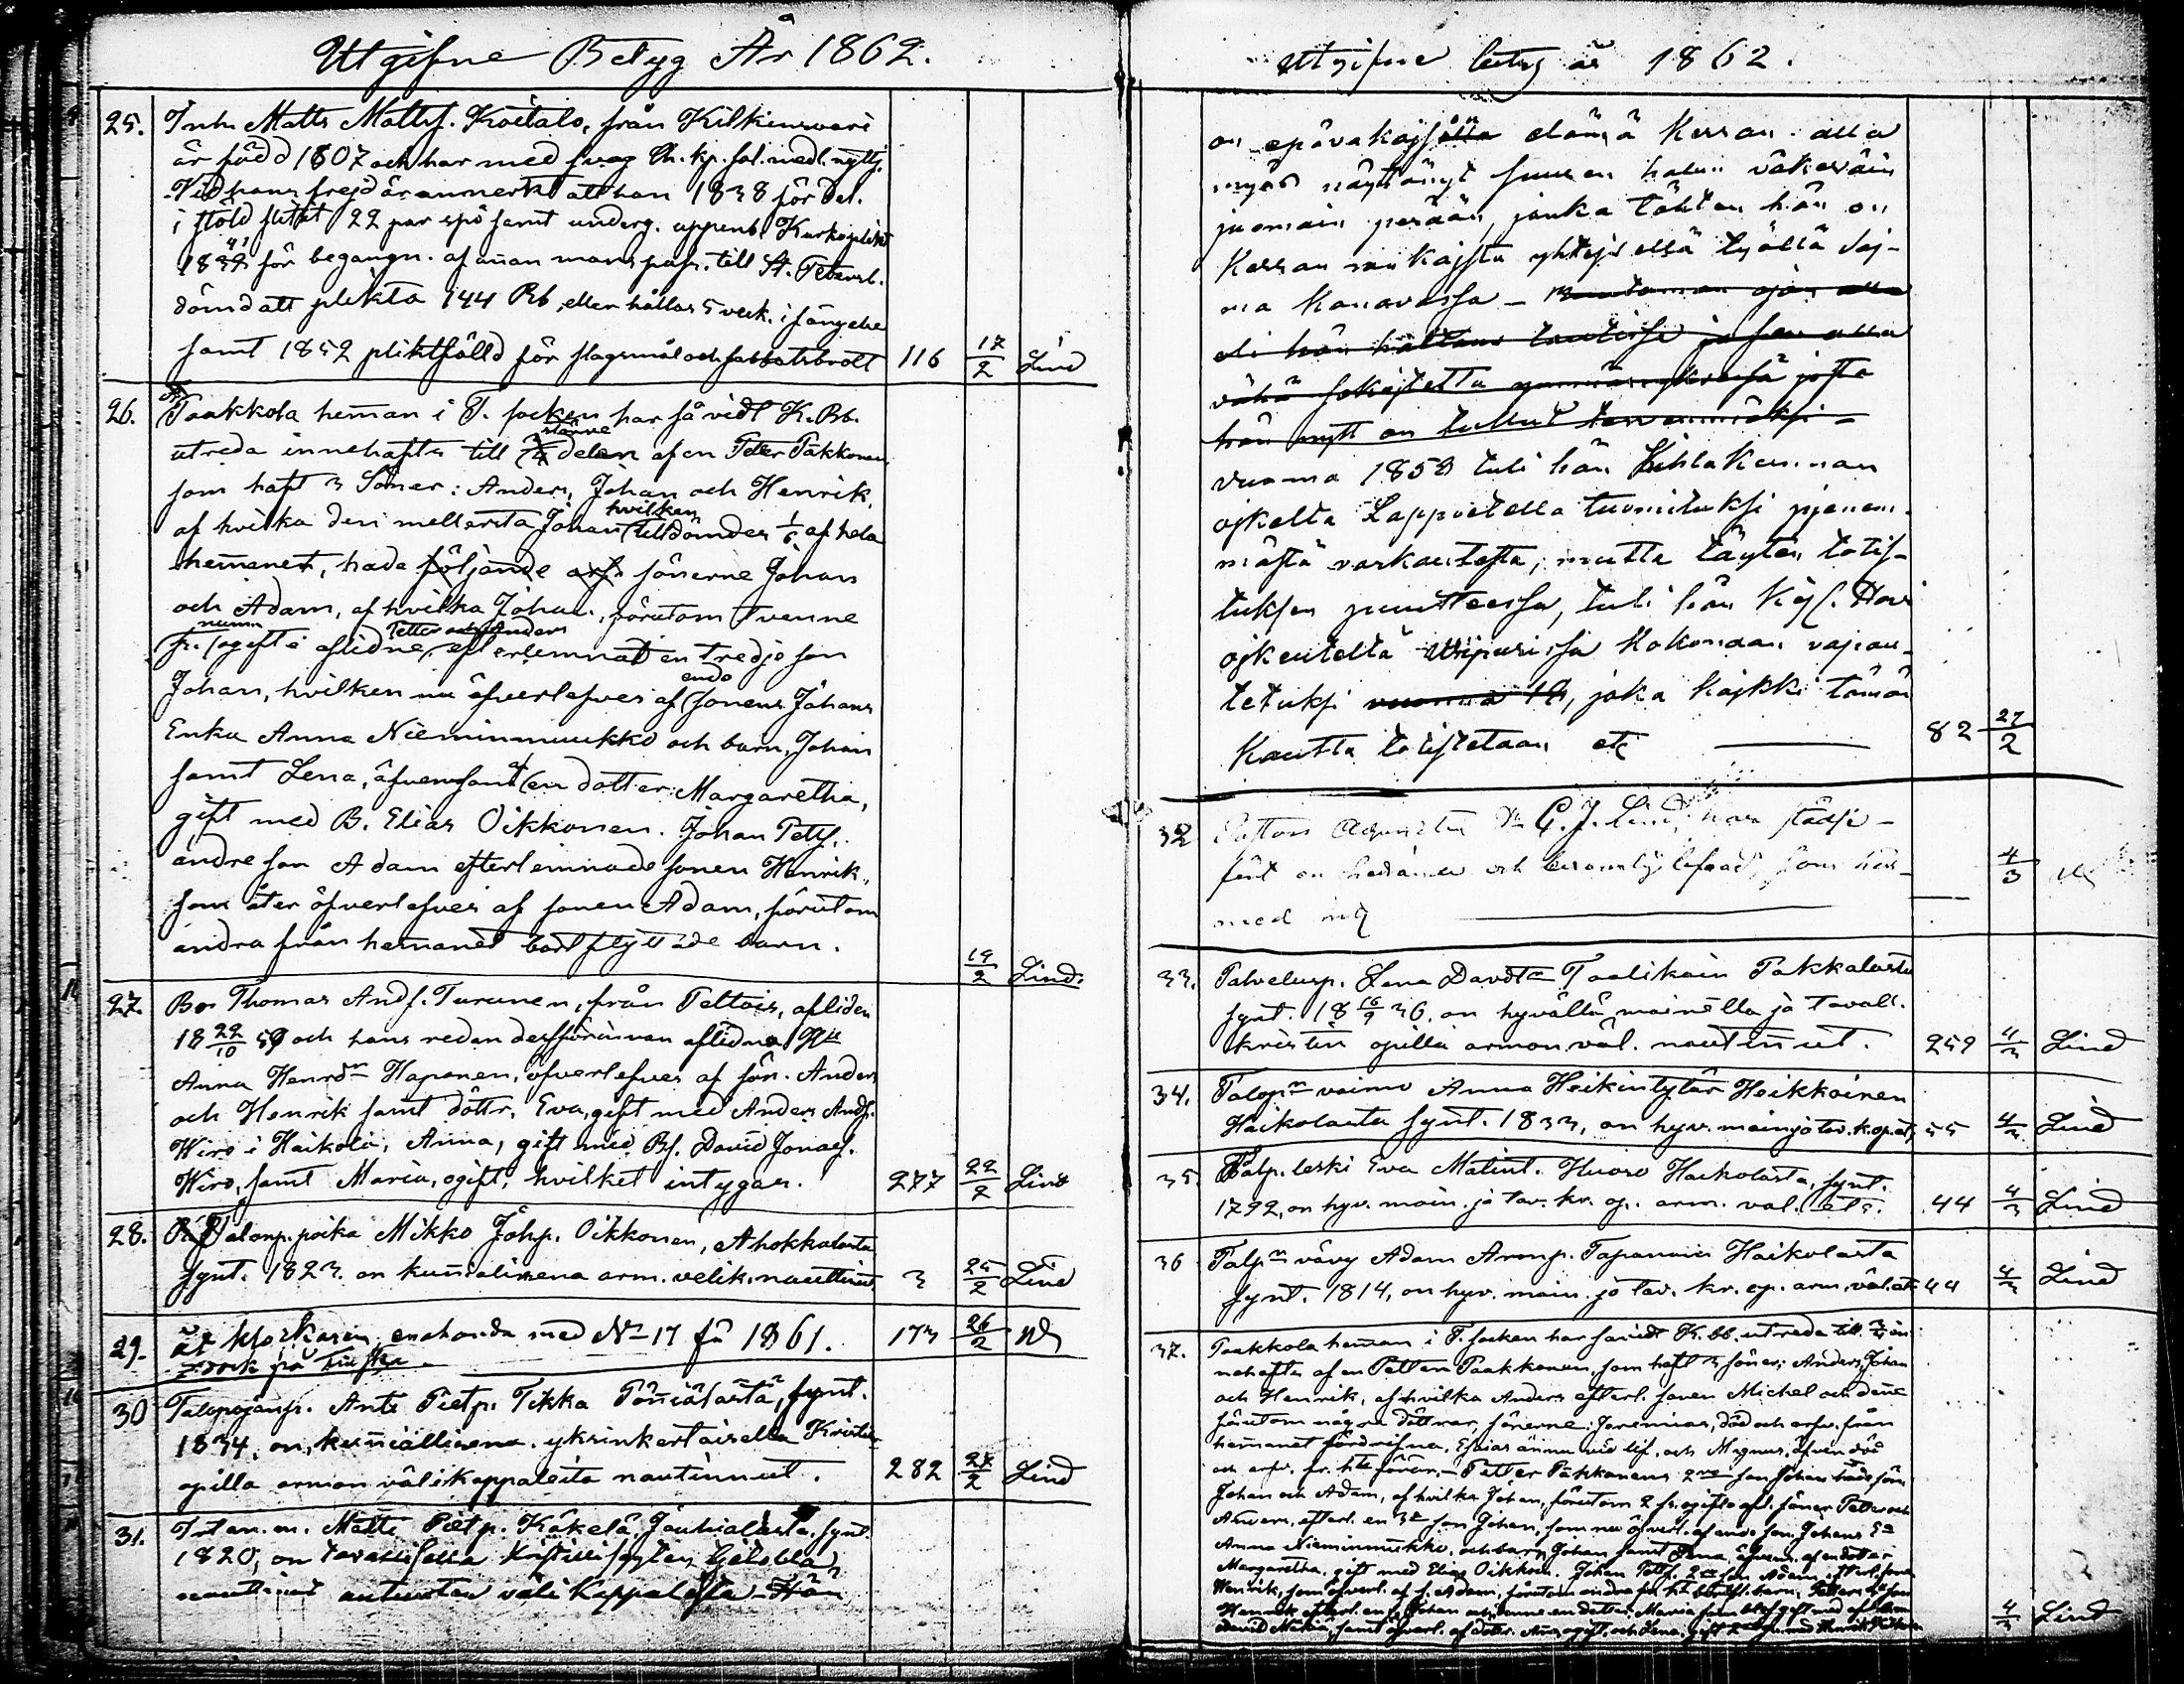 Utgifne Betyg År 1862.
25. Inh. Matts Mattss. Koitalo, från Kilkinswari
är född 1807 och har med svag Ch. kp. sal. medl. nyttj.
Vid hans frejd är anmerkt att han 1838 för del.
i stöld slitit 22 par spö samt underg. uppenb. Kyrkoplikt
1839 för begangn. af annan mans pass. till St. Petersb.
dömd att plikta 144 Rb eller hållas 5 veck. i fängelse
samt 1852 pliktfälld för slagsmål och sabbatsbrott 116 17/2 Lind
26. Taakkola hemman i T. socken har så vidt K. Bb.
utreda innehafts till delen af en Petter Pakkonen
som haft 3 Söner: Anders, Johan och Henrik,
af hvilka den mellersta Johan hvilken tilldömdes 1/6 af hela
hemmanet, hade följande sönerne Johan
och Adam, af hvilka Johan, förutom tvenne
ogifte aflidne Petter och Anders efterlemnat en tredje son
Johan, hvilken nu öfverlefves af endo sonens Johans
Enka Anna Nieminmuukko och barn, Johan
samt Lena, äfvensom en dotter Margaretha,
gift med B. Elias Oikkonen. Johan Petts.
andre son Adam efterlemnade sonen Henrik,
som åter öfverlefves af sonen Adam, förutom
andra från hemanet bortflyttade barn. 19/2 Lind.
27. Bo. Thomas Ands. Turunen, från Peltois, afliden
18 22/10 59 och hans redan dessförinnan aflidna Hu
Anna Henrdr Haponen, öfverlefves af sön. Anders
och Henrik samt döttr. Eva, gift med Anders Ands.
Wiro i Haikola, Anna, gift med Bs. David Jonass.
Wiro, samt Maria, ogift, hvilket intygas. 277 22/2 Lind
28. Talonp. poika Mikko Johp. Oikkonen, Ahokkalasta
synt. 1823. on kunialisena arm. velik. nauttinut 3 25/2 Lind
29. åt klockaren enahanda med No 17 få 1861. 173 26/2
dock på Finska
30 Talopojanp. Anti Pietp. Tikka Pöniälästä, synt.
1834, on kuniallisena yksinkertaisella Kristin
opilla armon välikappaleita nautinnut. 282 27/2 Lind
31. Matti Pietp. Käkelä, Jauhialasta, synt.
1820, on tavallisella kristillisyyten tiedolla
nauttinut autuuten väli Kappaleita Hän
Utgifne betyg år 1862.
on epävakaisella elämä Kerran alla
myös näyttänyt suuren halun väkeväin
juomain perään, jonka tähten hän on
Kerran rankaistu yhteisellä työllä Saj-
ma Kanavassa - Muutaman ajan alla
oli hän hättans tautissa ja sen alla
vähä sekajsetta ymmärryksessä josta
hän nytt on tullut tervemmäksi -
vuonna 1858 tuli hän Kihlakunnan
ojkelta Lappvedella tuomituksi pjenem-
mästä varkautesta, mutta täyten totis-
tuksen puutteessa, tuli hän Kejs. Hovi
ojkeutelta Wiipurissa Kokonaan vapau-
tetuksi vuonna 18, joka kajkki tämän
Kautta totistetaan etc 82 27/2
32 Pastors Adjuncten Hr G. J. Lind, har städse
fört en hedrande och berömlig lefnad, som här-
med intyg 4/3
33. Palvelusp. Lena Davdtr Taalikain Pakkalasta
synt. 18 16/9 36. on hyvällä mainella ja tavall.
kristin opilla armon väl. nautinnut. 259 4/3 Lind
34. Talopn vaimo Anna Heikintytär Heikkoinen
Haikolasta synt. 1833, on hyv. main. ja tav. k. op. etc 55 4/3 Lind
35 Talp. leski Eva Matint. Huoso Haikolasta, synt.
1792, on hyv. main. ja tav. kr. op. arm. val. etc. 44 4/3 Lind
36 Talpn vävy Adam Aromp. Tapanain Haikolasta
synt. 1814, on hyv. main. ja tav. kr. op. arm. väl. etc 44 4/3 Lind
37. Taakkola heman i T. socken har så vidt K. bb. utreda till 3/4 in-
nehafts af en Petter Paakkonen, som haft 3 söner: Anders, Johan
och Henrik, af hvilka Anders efterl. sonen Michel och denne
förutom några döttrar, sönerne: Jeremias, död och arfv. från
hemanet fördrifna, Esaias ännu vid lif, och Magnus, äfven död
och arfv. fr. förär. - Petter Pakkonens 2ne son Johan hade sön.
Johan och Adam, af hvilka Johan, förutom 2 fr. ogifte afl. söner Petter och
Anders, efterl. en 3e son Johan, som nu öfverl. af endo son Johans
Anna Nieminmukko, och barn Johan samt Lena, äfvens. af en dotter
Margaretha, gift med Elias Oikkon. Johan Petts. 2e son Adam efterl. sonen
Henrik, som öfverl. af s. Adam, förutom andra fr. bortfl. barn. Petters 3e son
Henrik efterl. en s. Johan och denne en dotter Maria som blef gift med
4/3 Lind